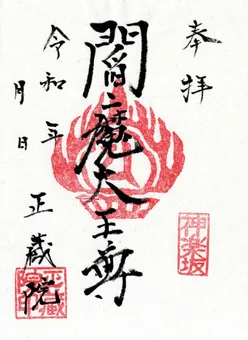 奉拝
閻魔大王尊
令和 年
月 日
正蔵院
神楽坂
正蔵院印